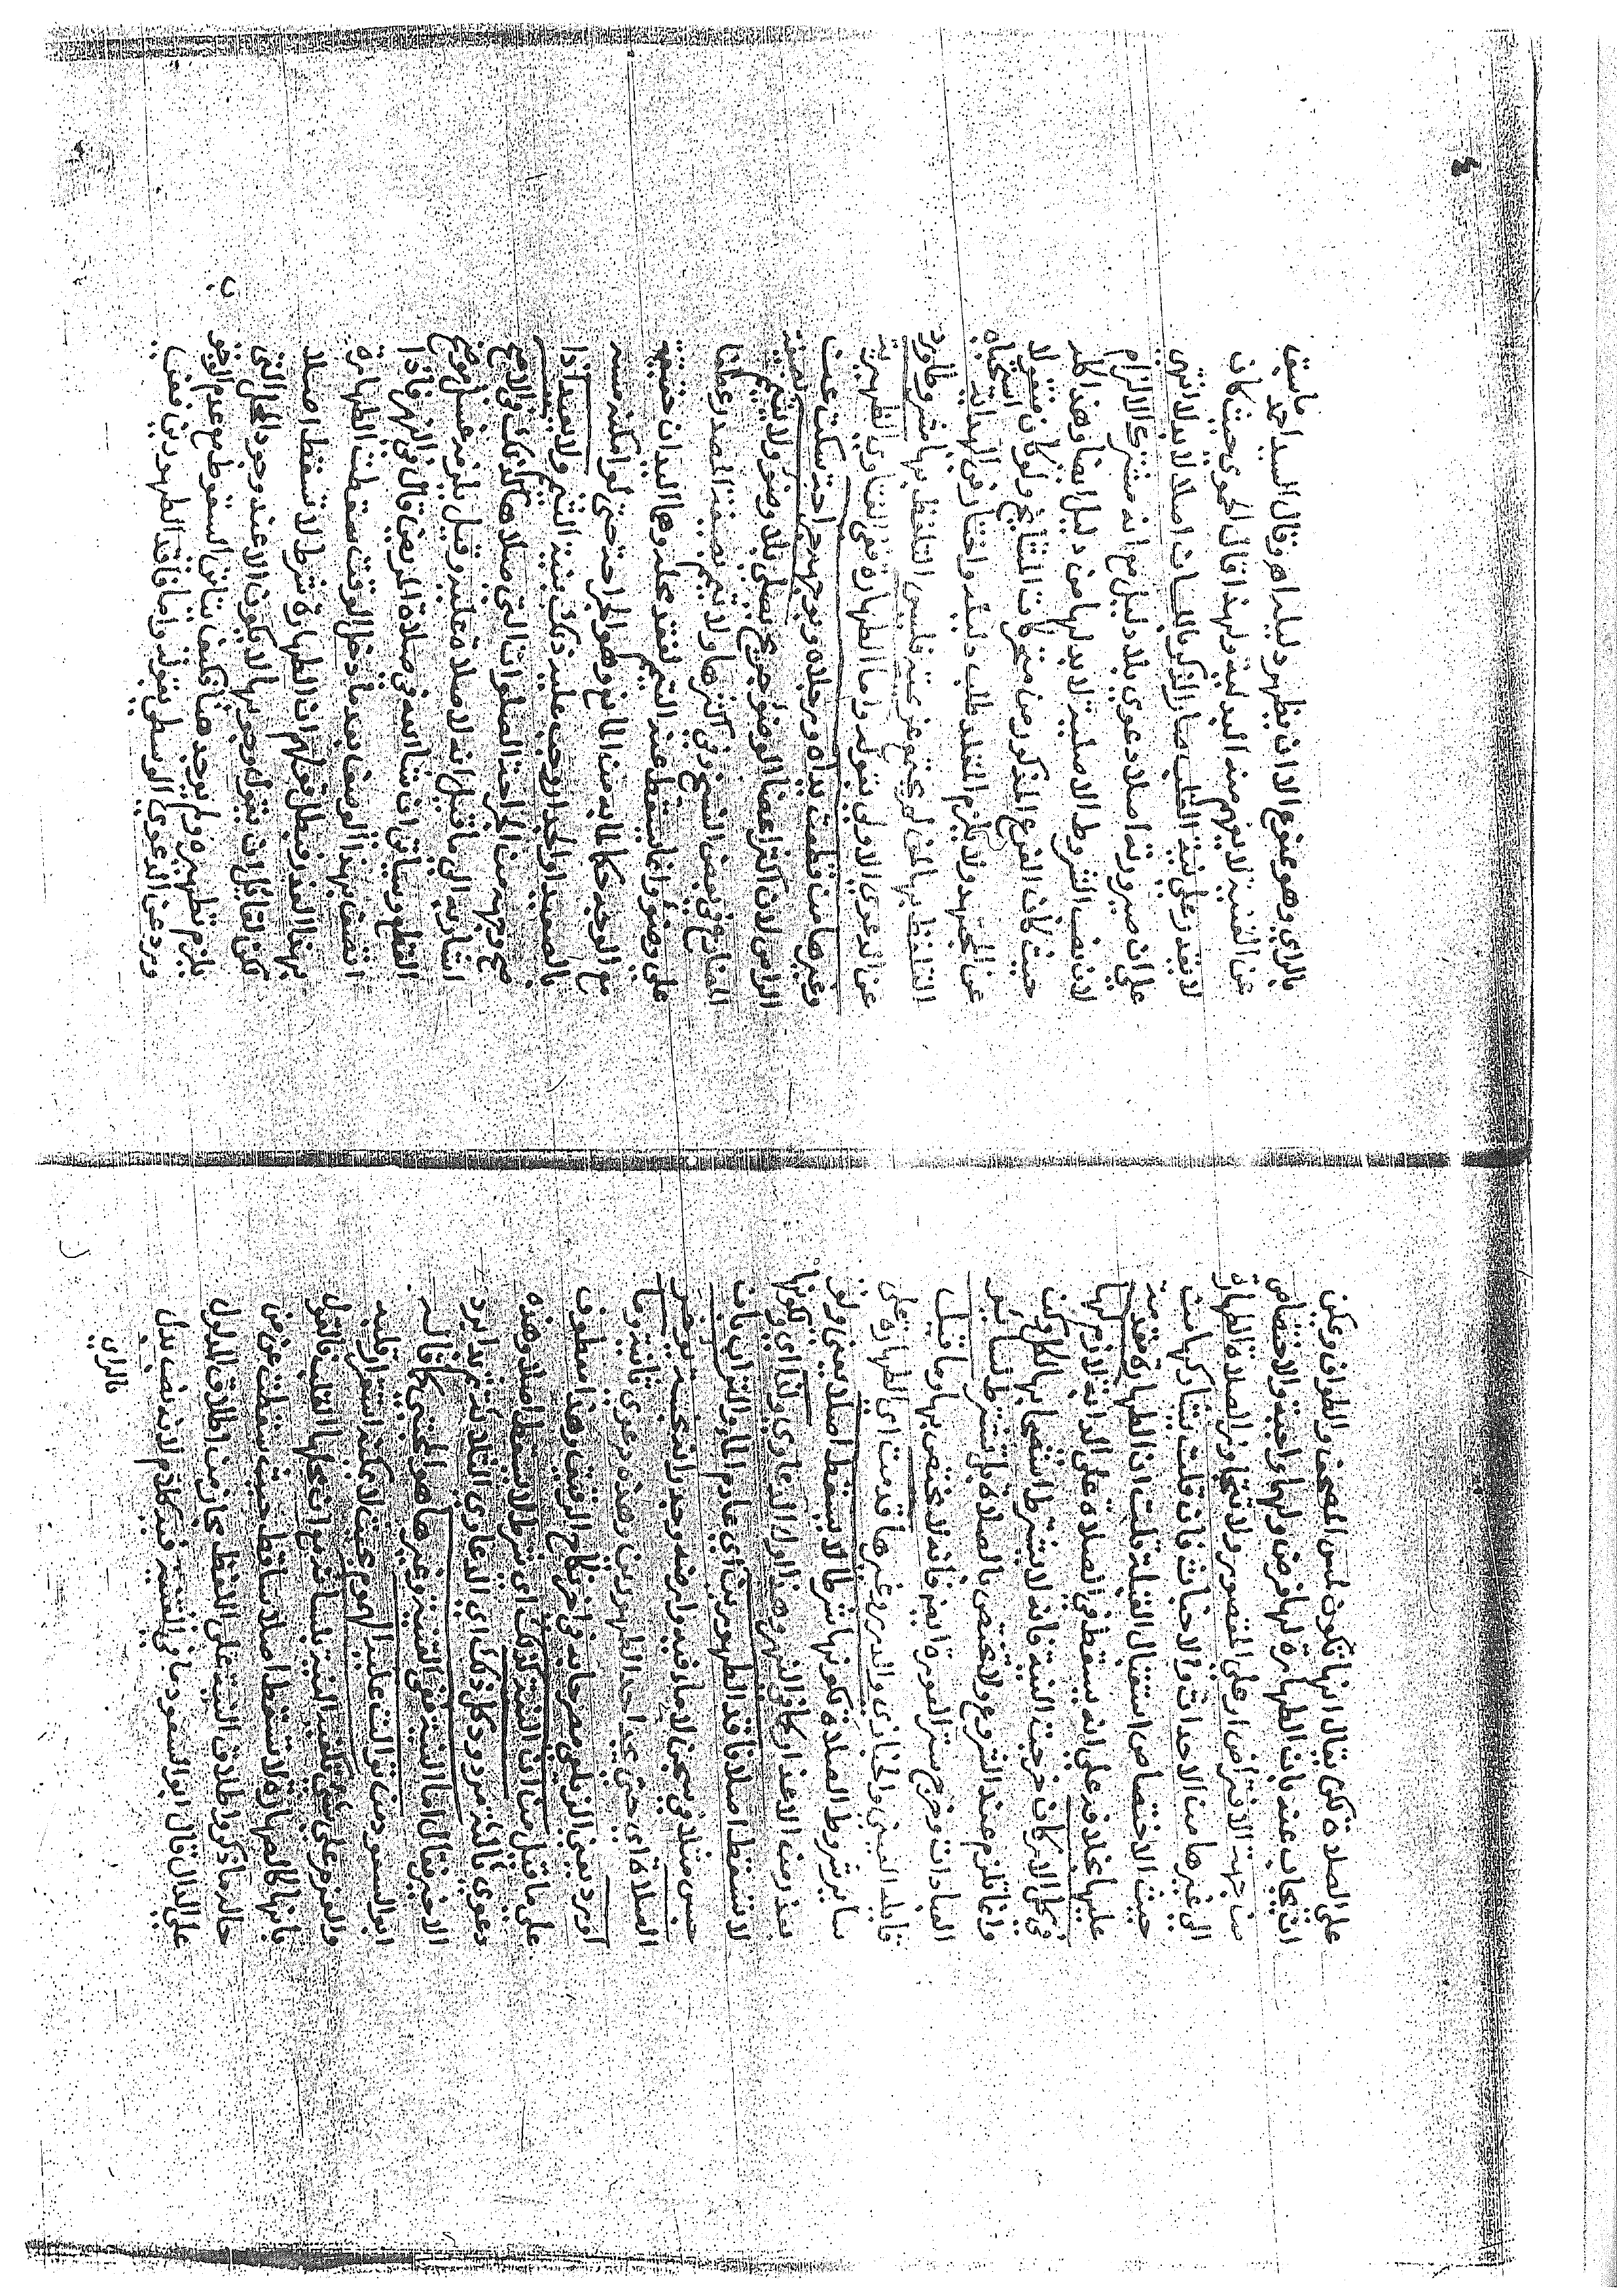 على الصلاة لكن يقال انها تكون لمس المصحف والطواف ويمكن
ان يجاب عنه بان الطهارة لها فرض ولها واجبة والاختصاص
من جهت الافتراض او على المقصور ولا تتجاوز الصلاة الطهارة
الى غيرها من الاحداث والاخباث فان قلت يشاركها من
حيث الاختصاص استقبال القبلة قلت ان الطهارة مقدمة
عليها بخلافه على انه يسقط في الصلاة على الدابة لازم لها
في كل الاركان خرجت النية فانه لا يشترط استصحابها لكل ركن
وانما تلزم عند الشروع ولا تختص بالصلاة بل تشترط لسائر
العبادات وخرج ستر العورة ايضا فانه لا يختص بها وما قيل
قايله العيني والخبازي والدرر وغيرها قدمت اي الطهارة على
ساير شروط الصلاة لكونها شرطا لا يسقط اصلا يعني ولو
بعذر من الاعذار كما في النهر وهذا اول الدعاوي ولذا اي لكونها
لا تسقط اصلا فاقد الطهورين اي عادم الماء والتراب بان
حبس مثلا في سجن لا ماء فيه وارضه وجدرانه نجسة يؤخر
الصلاة اي حتى يجد احد الطهورين وهذه دعوي ثانية وما
اورد يعني الزيلعي مصرحا به في اخر نكاح الرقيق وهذا معطوف
على ما قيل من ان النية كذلك اي شرط لا يسقط اصلا وهذه
دعوي ثالثة مردود كل ذلك اي الدعاوي الثلاثة
الاخير فقال اما النية ففي القنية وغيرها هو المجتبى كما قاله
ابو السعود من توالت عليه الهموم بحيث لا يمكنه استقرار قلبه
والعزم على شيء تكفيه النية بلسانه مع ان محلها القلب فالقول
بانها كالطهارة لا تسقط اصلا ساقط حيث سقطت عن من
حاله ما ذكر واطلاق النية على اللفظ مجاز من اطلاق المدلول
على الدال قال ابو السعود ما في القنية فيه كلام لانه نصب بدل
بالراي
٤
بالراي وهو ممنوع الا ان يظهر دليله اه وقال السيد احمد ما سبق
عن القنية لا يفهم منه البدلية ولهذا قال الحموي بحيث كان
لا يقدر على نية القلب صار الذكر باللسان اصلا لا بدلا انتهى
على ان صيرورته اصلا دعوي بلا دليل مع انه مشترك الالزام
لان نصب الشروط الاصلية لا بد لها من دليل ايضا وهذا كله
حيث كان الفرع المذكور من مخرجات المشايخ ولو كان منقولا
عن المجتهد ولا يلزم المقلد طلب دليله واختار في الهداية استحباه
التلفظ بها لمن لم تجتمع عزيمته فليس التلفظ بها بشرط واورد
عن الدعوي الاولى بقوله واما الطهارة ففي الفتاوي الظهيرية
وغيرها من قطعت يداه ورجلاه وبوجهه جراحة سكت عن
الراس لان اكثر اعضا الوضوء جريح يصلي بلا وضوء ولا تيمم
المنازع في بعض النسخ وفي اكثرها ولا تيمم بصيغة المصدر عطفا
على وضوء وانما يسقط عنه التيمم لفقد محله وهما اليدان حقيقة
مع الوجه حكما لما به من المانع وهو الجراحة حتى لو امكنه مسه
بالصعيد او الجدار وجب عليه ذلك بنية التيمم ولا يعيد اذا
صح وجهه من الجراحة الصلوات التي صلاها كذلك في الاصح
اشار به الى ما قيل انه لا صلاة عليه وقيل يلزمه غسل موضع
القطع وسياتي ان شا الله في صلاة المريض قال في النهر فاذا
اتصف بهذا الوصف بعد ما دخل الوقت سقطت الطهارة
بهذا العذر وبطل قولهم ان الطهارة شرط لا تسقط اصلا
لكن لقائل ان يقول وجوبها لا يكون الا عند وجود المحل الذي
يلزم تطهيره ولم يوجد هنا فكيف يتاتى السقوط مع عدم الوجوب
ورد عن الدعوي الوسطى بقوله واما فاقد الطهورين ففي